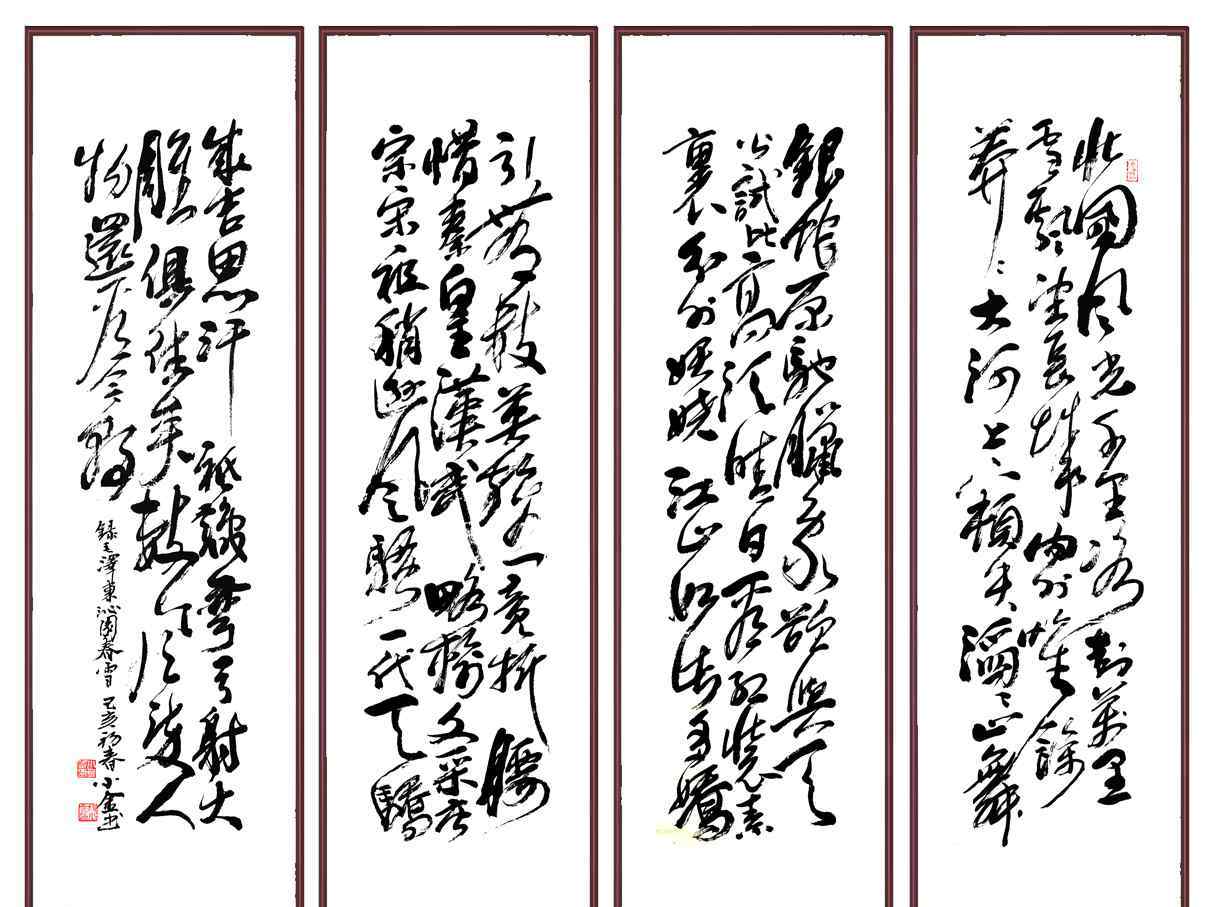 北國風光千里冰封萬里
雪飄望長城內外惟餘
莽〻大河上下頓失滔〻山舞
銀蛇原馳臘象欲與天
公試比高須晴日看紅裝素
裹分外妖嬈江山如此多嬌
引無數英雄竞折腰
惜秦皇漢武略輸文采唐
宗宋祖稍遜風騷一代天驕
成吉思汗祇識彎弓射大
雕俱往矣數風流人
物還看今朝
錄毛澤東沁園春雪 己亥初春小金书